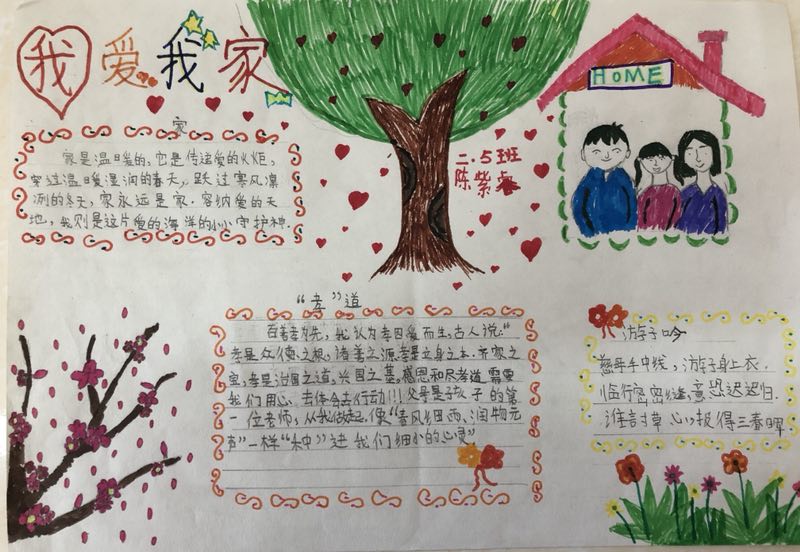 我爱我家
HOME
二.5班
陈紫睿
家
家是温暖的,它是传递爱的火炬,
穿过温暖湿润的春天,跃过寒风凛
冽的冬天,家永远是家.容纳爱的天
地,我则是这片爱的海洋的小小守护神.
“孝”道
百善孝为先,我认为孝因爱而生,古人说:“
孝是众德之根,诸善之源,孝是立身之本.齐家之
宝,孝是治国之道,兴国之基,感恩和尽孝道需要
我们用心,去体会去行动!!!父母是孩子的第
一位老师,从我做起,像“春风细雨,润物无
声”一样“种”进我们细小的心灵”
游子吟
慈母手中线,游子身上衣.
临行密密缝,意恐迟迟归.
谁言寸草心,报得三春晖